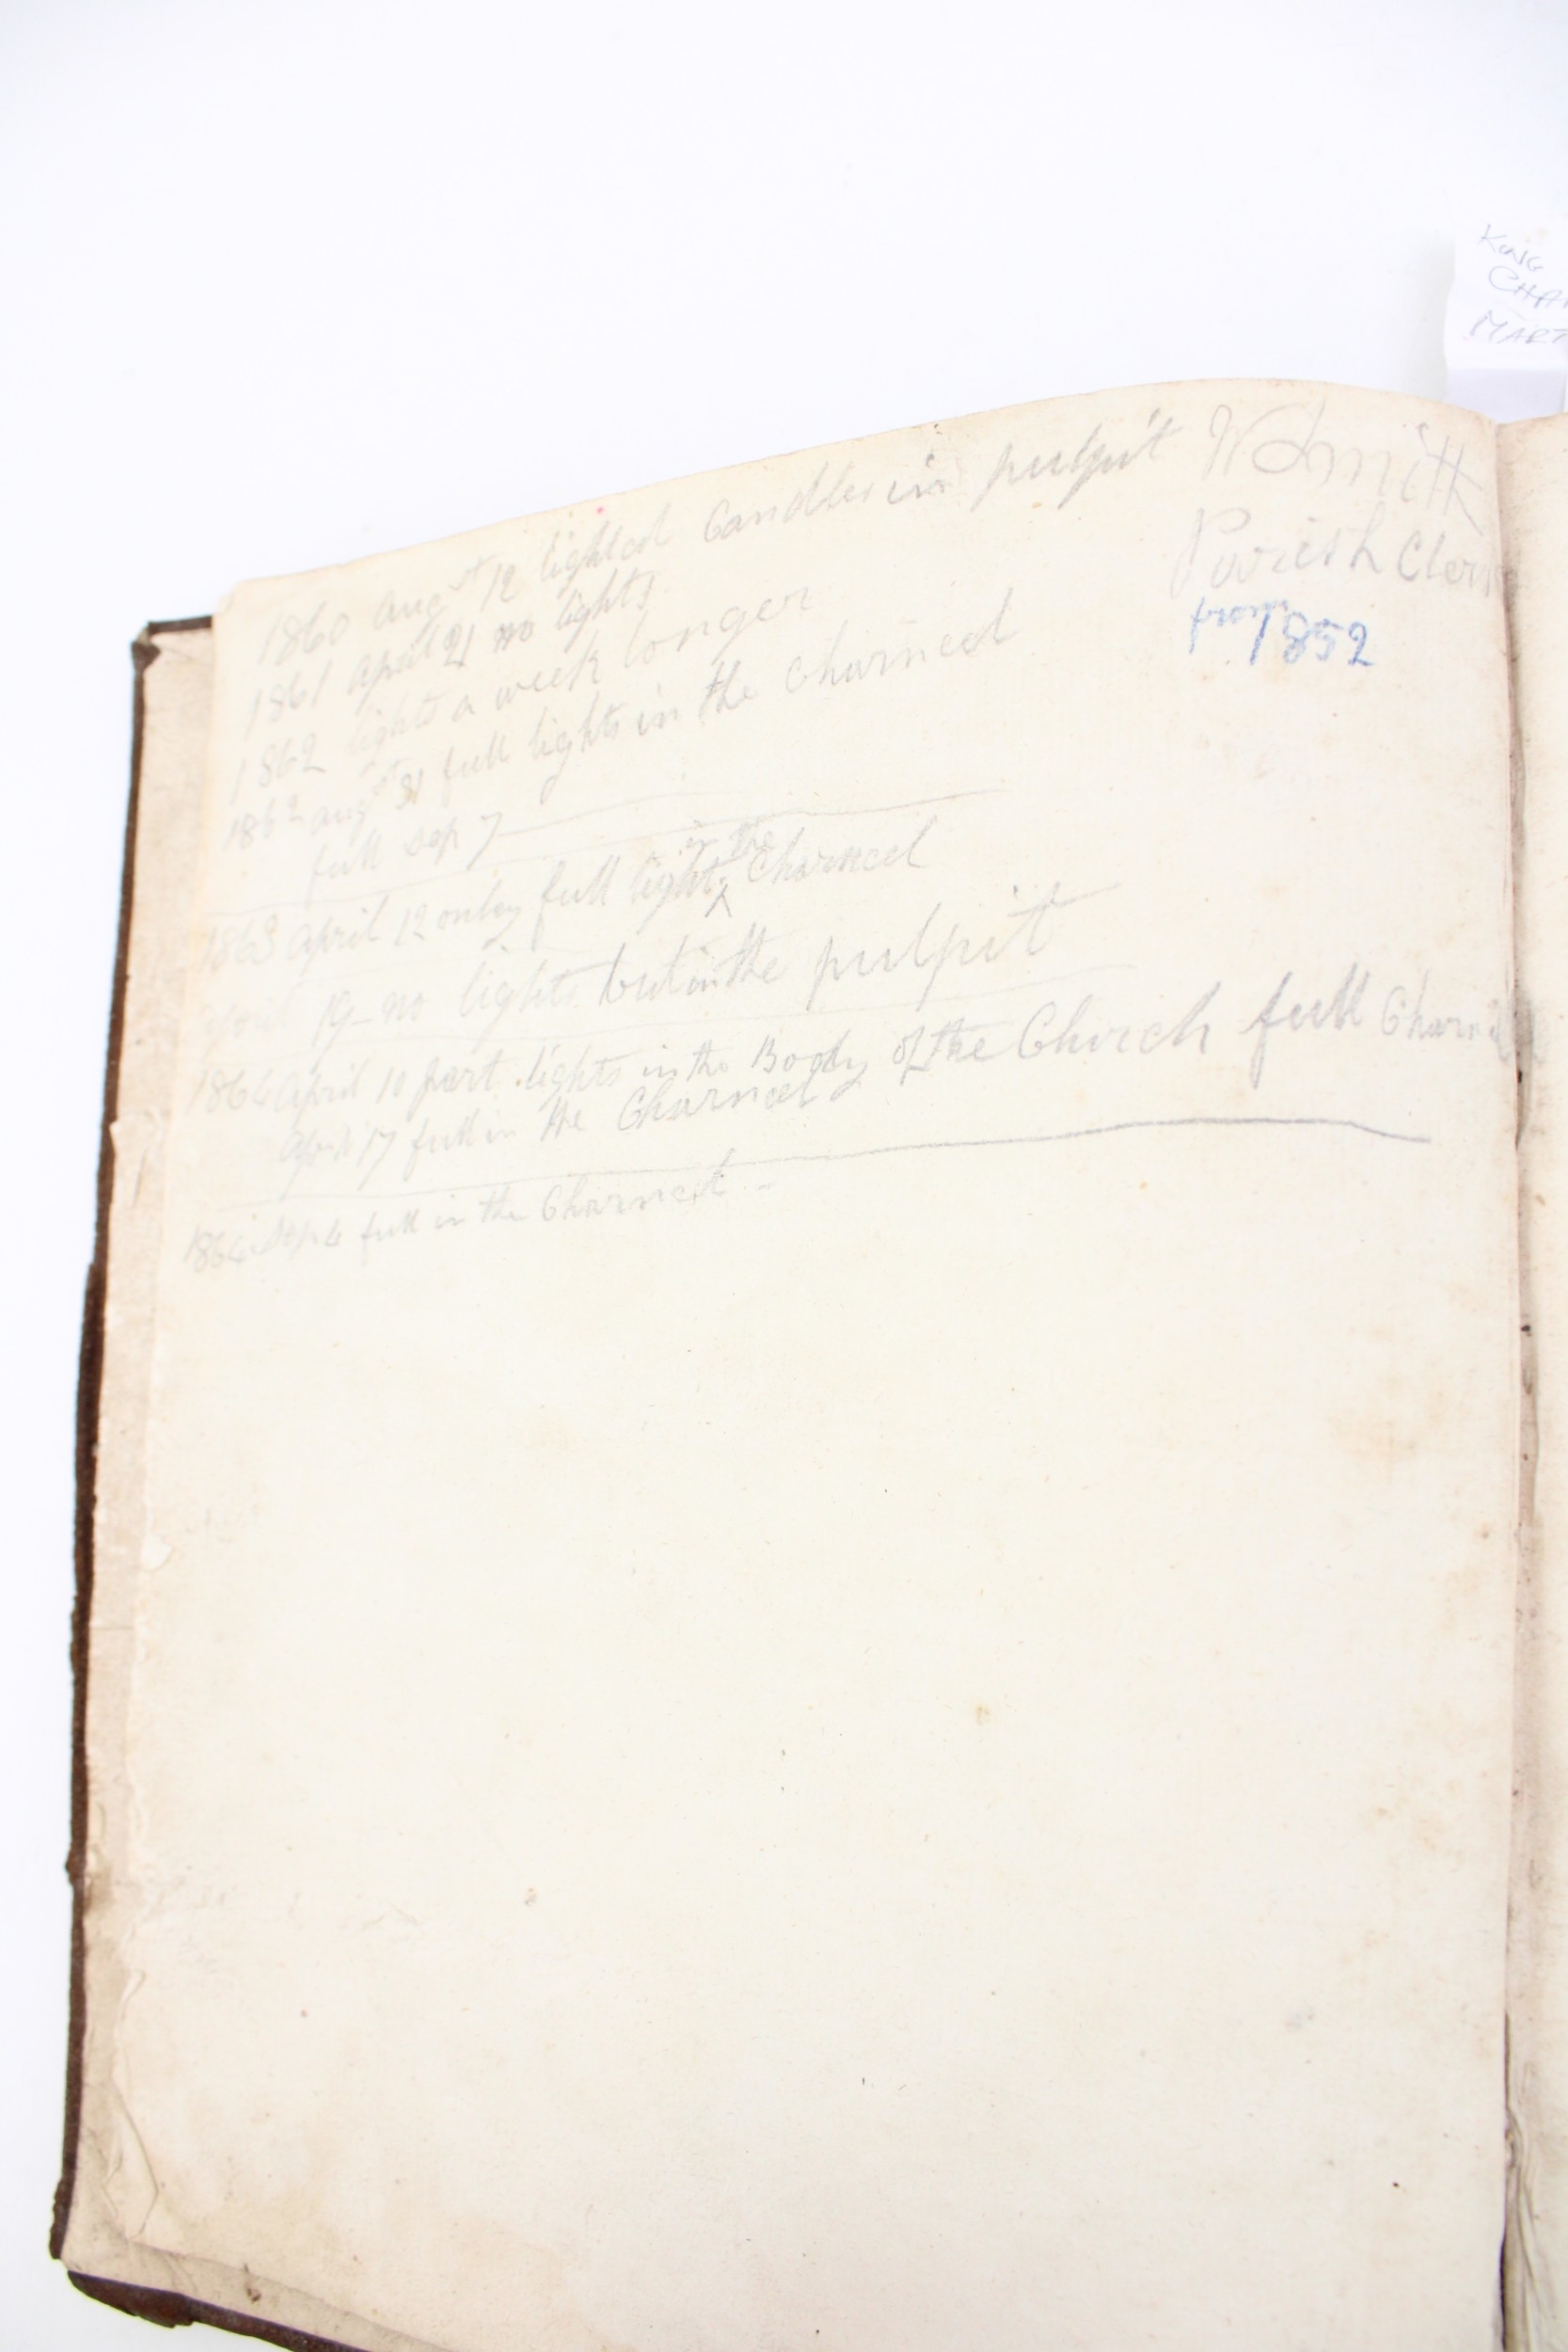 King
CHA
MART
W Smith
Parish Clerk
from 1852
1860 augst 12 lighted Candles in pulpit
1861 april 21 no lights
1862 lights a week longer
1862 augst 31 full lights in the Charncel
full Sep 7
1863 april 12 onley full lights in the Charncel
april 19 no lights but in the pulpit
1864 april 10 part lights in the Body of the Chirch full Charncel
April 17 full in the Charncel
1864 Sep 4 full in the Charncel